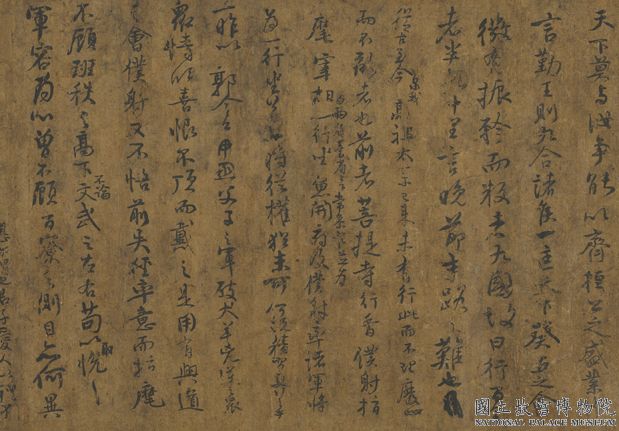 天下莫与汝爭能以齊桓公之盛業
言勤王則九合諸侯一匡天下葵丘之會
微有振矜而叛者九國故曰行百里
者半九十里言晚節末路之難也
從古至今曁我高祖太宗已來未有行此而不理廢此
而不亂者也前者菩提寺行香僕射指
麾宰相与兩省臺省已下常參官並為一行坐魚開府及僕射率諸軍將
為一行坐若一時從權猶未可何況積習更行之乎
一昨以郭令公以父子之軍破犬羊凶逆之衆
衆情欣喜恨不頂而戴之是用有興道
之會僕射又不悟前失徑率意而指麾
不顧班秩之高下不論文武之左右苟以取悅
軍容為心曾不顧百寮之側目亦何異
君子愛人以
國立故宮博物院
NATIONAL PALACE MUSEUM